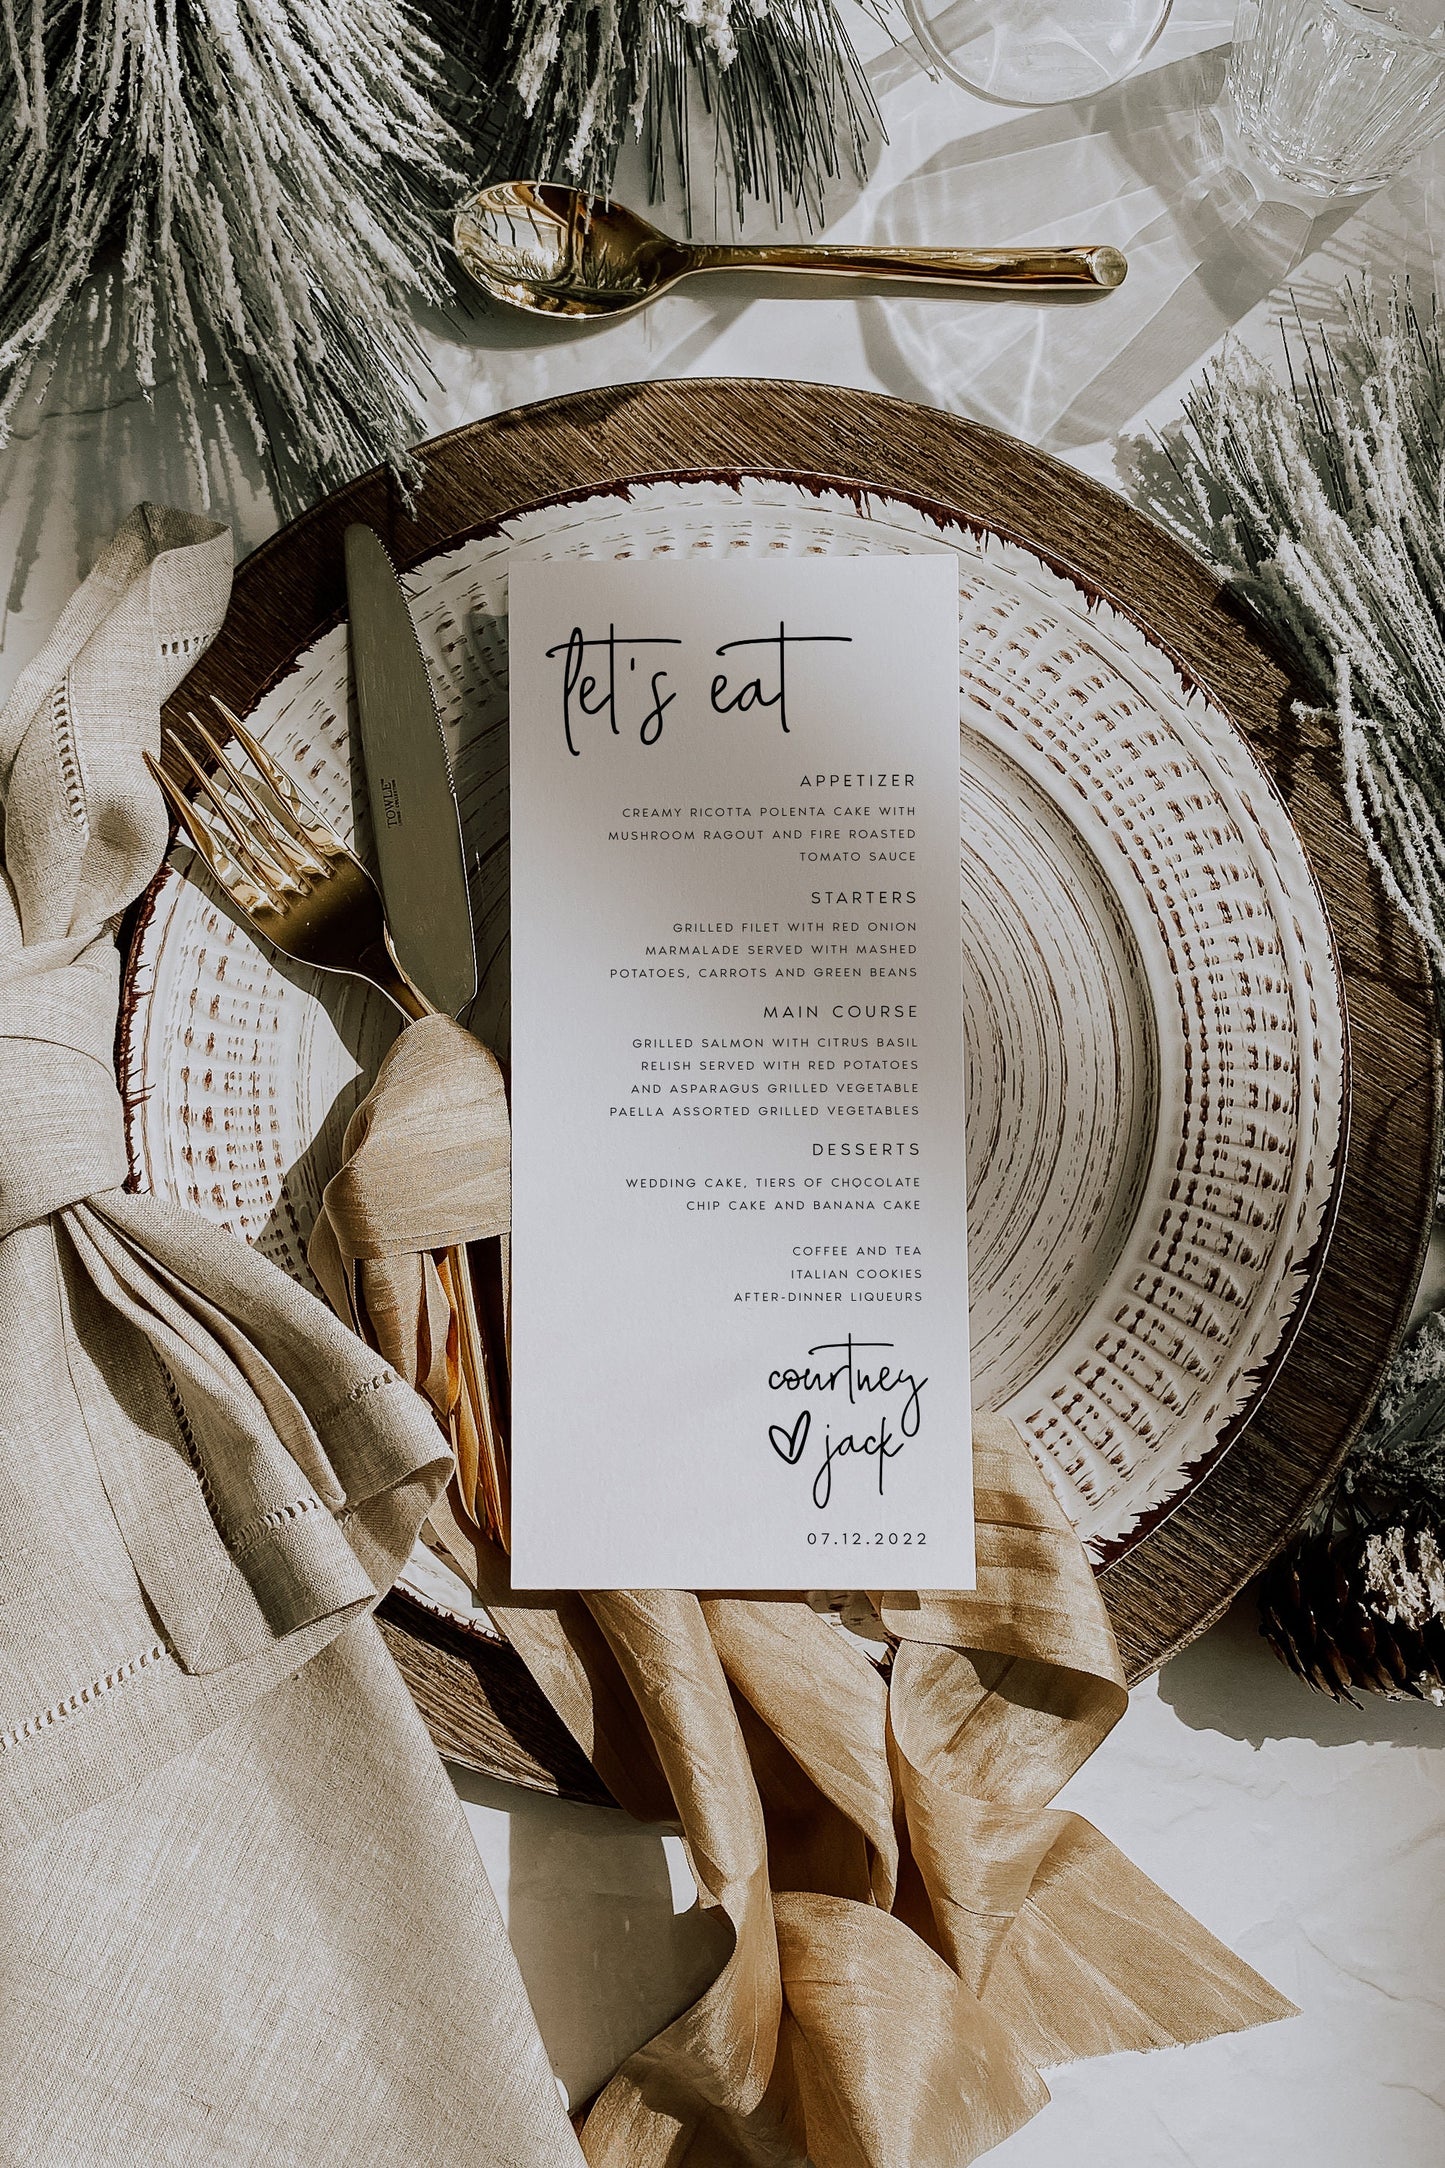 let's eat
APPETIZER
CREAMY RICOTTA POLENTA CAKE WITH
MUSHROOM RAGOUT AND FIRE ROASTED
TOMATO SAUCE
STARTERS
GRILLED FILET WITH RED ONION
MARMALADE SERVED WITH MASHED
POTATOES, CARROTS AND GREEN BEANS
MAIN COURSE
GRILLED SALMON WITH CITRUS BASIL
RELISH SERVED WITH RED POTATOES
AND ASPARAGUS GRILLED VEGETABLE
PAELLA ASSORTED GRILLED VEGETABLES
DESSERTS
WEDDING CAKE, TIERS OF CHOCOLATE
CHIP CAKE AND BANANA CAKE
COFFEE AND TEA
ITALIAN COOKIES
AFTER-DINNER LIQUEURS
courtney
jack
07.12.2022
TOWLE